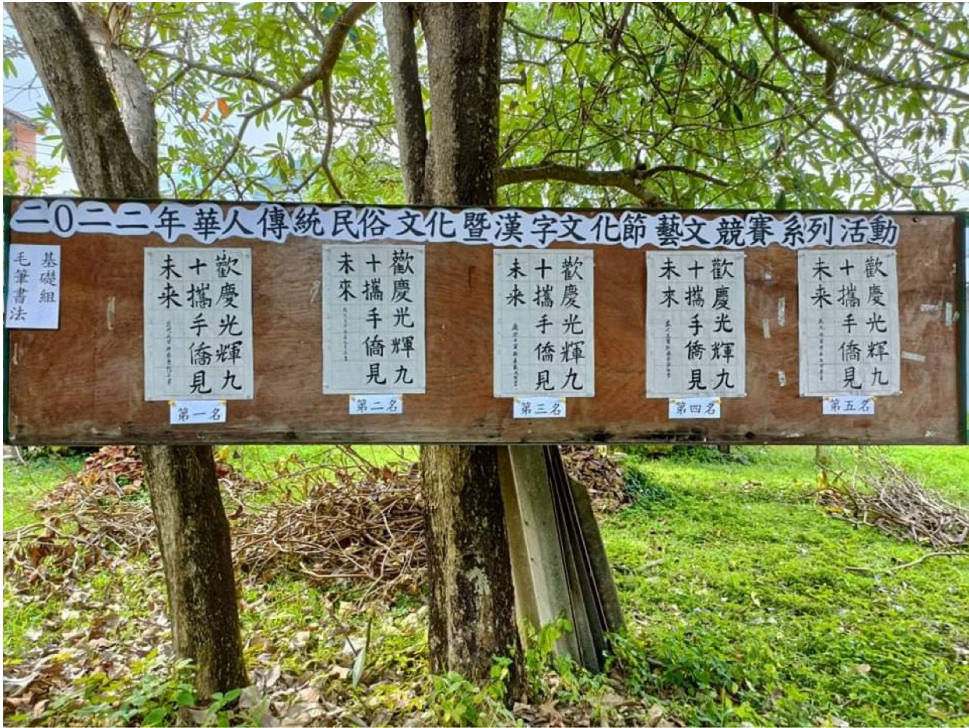 二0二二年華人傳統民俗文化暨漢字文化節藝文競賽系列活動
基礎組
毛筆書法
歡慶光輝九
十攜手僑見
未來
第一名
歡慶光輝九
十攜手僑見
未來
第二名
歡慶光輝九
十攜手僑見
未來
第三名
歡慶光輝九
十攜手僑見
未來
第四名
歡慶光輝九
十攜手僑見
未來
第五名